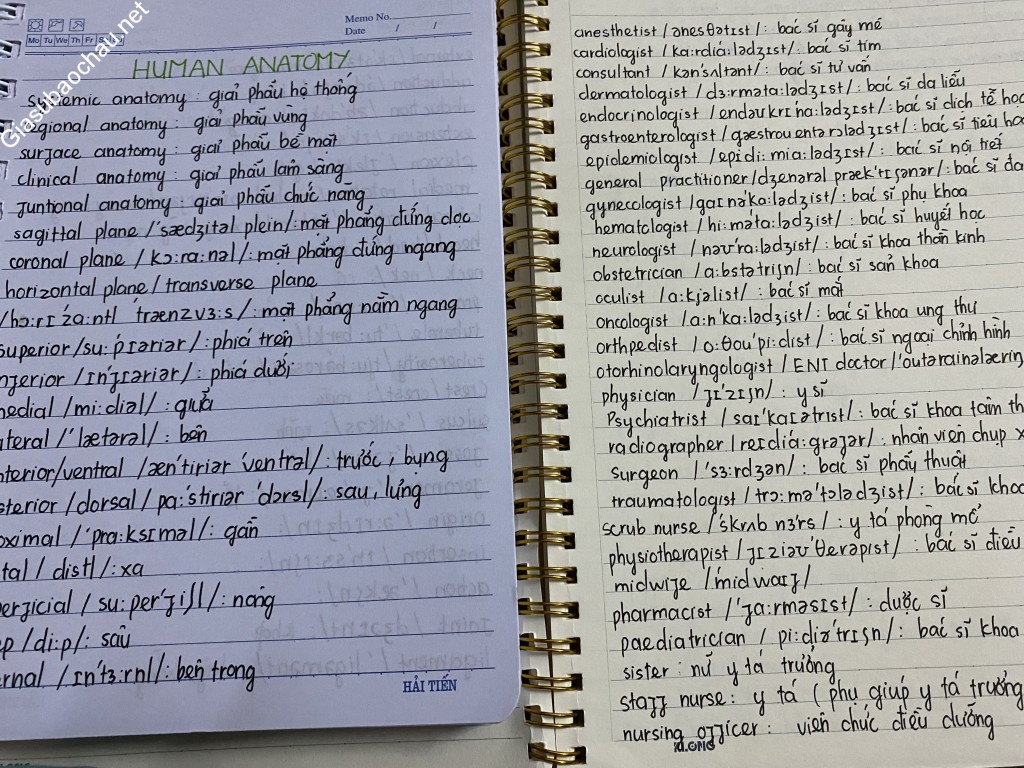 Giasubaochau.net
Memo No.
Date / /
Mo Tu We Th Fr S Su
HUMAN ANATOMY
systemic anatomy : giải phẫu hệ thống
regional anatomy : giải phẫu vùng
surface anatomy : giải phẫu bề mặt
clinical anatomy : giải phẫu lâm sàng
funtional anatomy : giải phẫu chức năng
sagittal plane /'sædʒitəl plein/ : mặt phẳng đứng dọc
coronal plane / kɔ:rə:nəl/ : mặt phẳng đứng ngang
horizontal plane / transverse plane
/hɔ:rɪ'zɑ:ntl 'trænzvɜ:s/ : mặt phẳng nằm ngang
superior /su:'pɪəriər/ : phía trên
inferior /ɪn'fɪəriər/ : phía dưới
medial /mi:diəl/ : giữa
ateral /'lætərəl/ : bên
nterior/ventral /æn'tiriər 'ventrəl/ : trước, bụng
sterior /dorsal / pɑ:'stiriər 'dɔrsl/ : sau, lưng
oximal /'prɑ:ksɪməl/ : gần
tal / distl/ : xa
perficial / su:pər'fiʃl/ : nông
ep /di:p/ : sâu
ernal /ɪn'tɜ:rnl/ : bên trong
HẢI TIẾN
anesthetist /ənesθətɪst/ : bác sĩ gây mê
cardiologist / kɑ:rdiɑ:lədʒɪst/ : bác sĩ tim
consultant / kən'sʌltənt/ : bác sĩ tư vấn
dermatologist / dɜ:rmətɑ:lədʒɪst/ : bác sĩ da liễu
endocrinologist /endəʊkrɪ'nɑ:lədʒɪst/ : bác sĩ dịch tễ họ
gastroenterologist / gæstroʊentərɔlədʒɪst/ : bác sĩ tiêu hó
epidemiologist /epidi:miɑ:lədʒɪst/ : bác sĩ nội tiết
general practitioner /dʒenərəl præk'tɪʃənər/ : bác sĩ đa
gynecologist /gaɪnə'kɑ:lədʒist/ : bác sĩ phụ khoa
hematologist / hi:mətɑ:lədʒist/ : bác sĩ huyết học
neurologist / nəʊ'rɑ:lədʒist/ : bác sĩ khoa thần kinh
obstetrician /ɑ:bstətriʃn/ : bác sĩ sản khoa
oculist /ɑ:kjəlist/ : bác sĩ mắt
oncologist /ɑ:n'kɑ:lədʒist/ : bác sĩ khoa ung thư
orthpedist / ɔ:θoʊ'pi:dist/ : bác sĩ ngoại chỉnh hình
otorhinolaryngologist / ENT doctor /'oʊtərainəlæring
physician / fɪ'zɪʃn/ : y sĩ
Psychiatrist / saɪ'kaɪətrɪst/ : bác sĩ khoa tâm th
radiographer /reɪdiɑ:grəfər/ : nhân viên chụp x
surgeon / 'sɜ:rdʒən/ : bác sĩ phẫu thuật
traumatologist / trɔ:mə'tɔlədʒist/ : bác sĩ khoa
scrub nurse /'skrʌb nɜrs/ : y tá phòng mổ
physiotherapist / fɪziəʊ'θerəpɪst/ : bác sĩ điều
midwife /'midwaɪf/
pharmacist /'fɑ:rməsɪst/ : dược sĩ
paediatrician / pi:diə'trɪʃn/ : bác sĩ khoa
sister : nữ y tá trưởng
staff nurse : y tá ( phụ giúp y tá trưởng
nursing officer : viên chức điều dưỡng